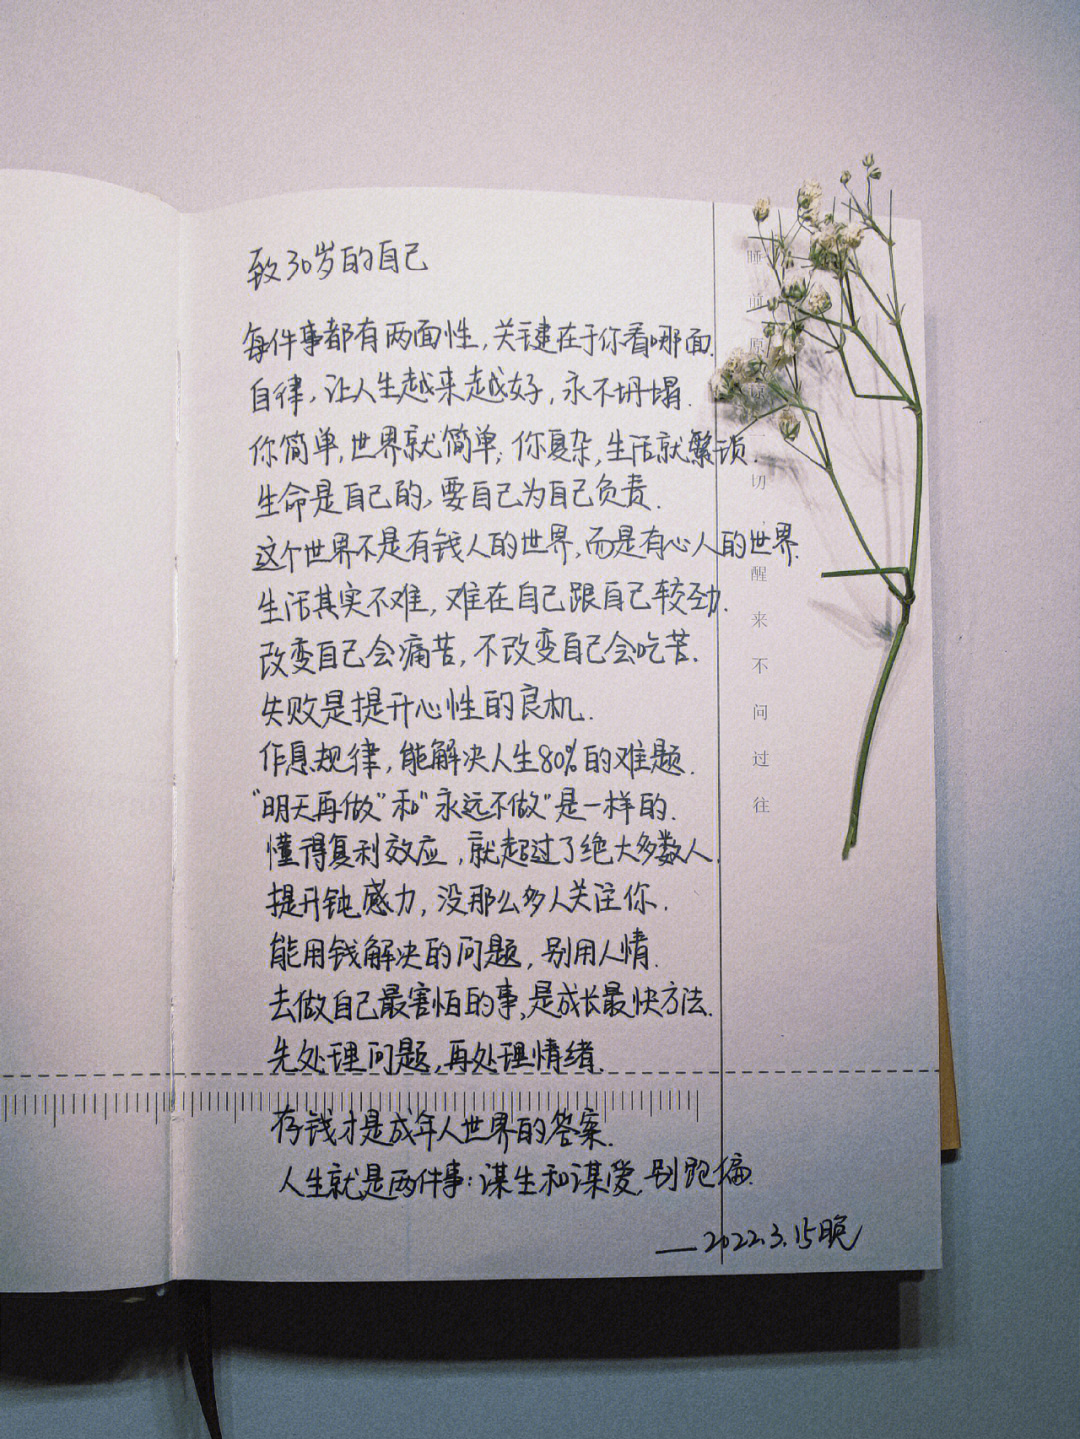 致30岁的自己
每件事都有两面性,关键在于你看哪面.
自律,让人生越来越好,永不坍塌.
你简单,世界就简单;你复杂,生活就繁琐.
生命是自己的,要自己为自己负责.
这个世界不是有钱人的世界,而是有心人的世界.
生活其实不难,难在自己跟自己较劲.
改变自己会痛苦,不改变自己会吃苦.
失败是提升心性的良机.
作息规律,能解决人生80%的难题.
“明天再做”和“永远不做”是一样的.
懂得复利效应,就超过了绝大多数人.
提升钝感力,没那么多人关注你.
能用钱解决的问题,别用人情.
去做自己最害怕的事,是成长最快方法.
先处理问题,再处理情绪.
存钱才是成年人世界的答案.
人生就是两件事:谋生和谋爱,别跑偏.
——2022.3.15晚
睡前原谅一切,醒来不问过往